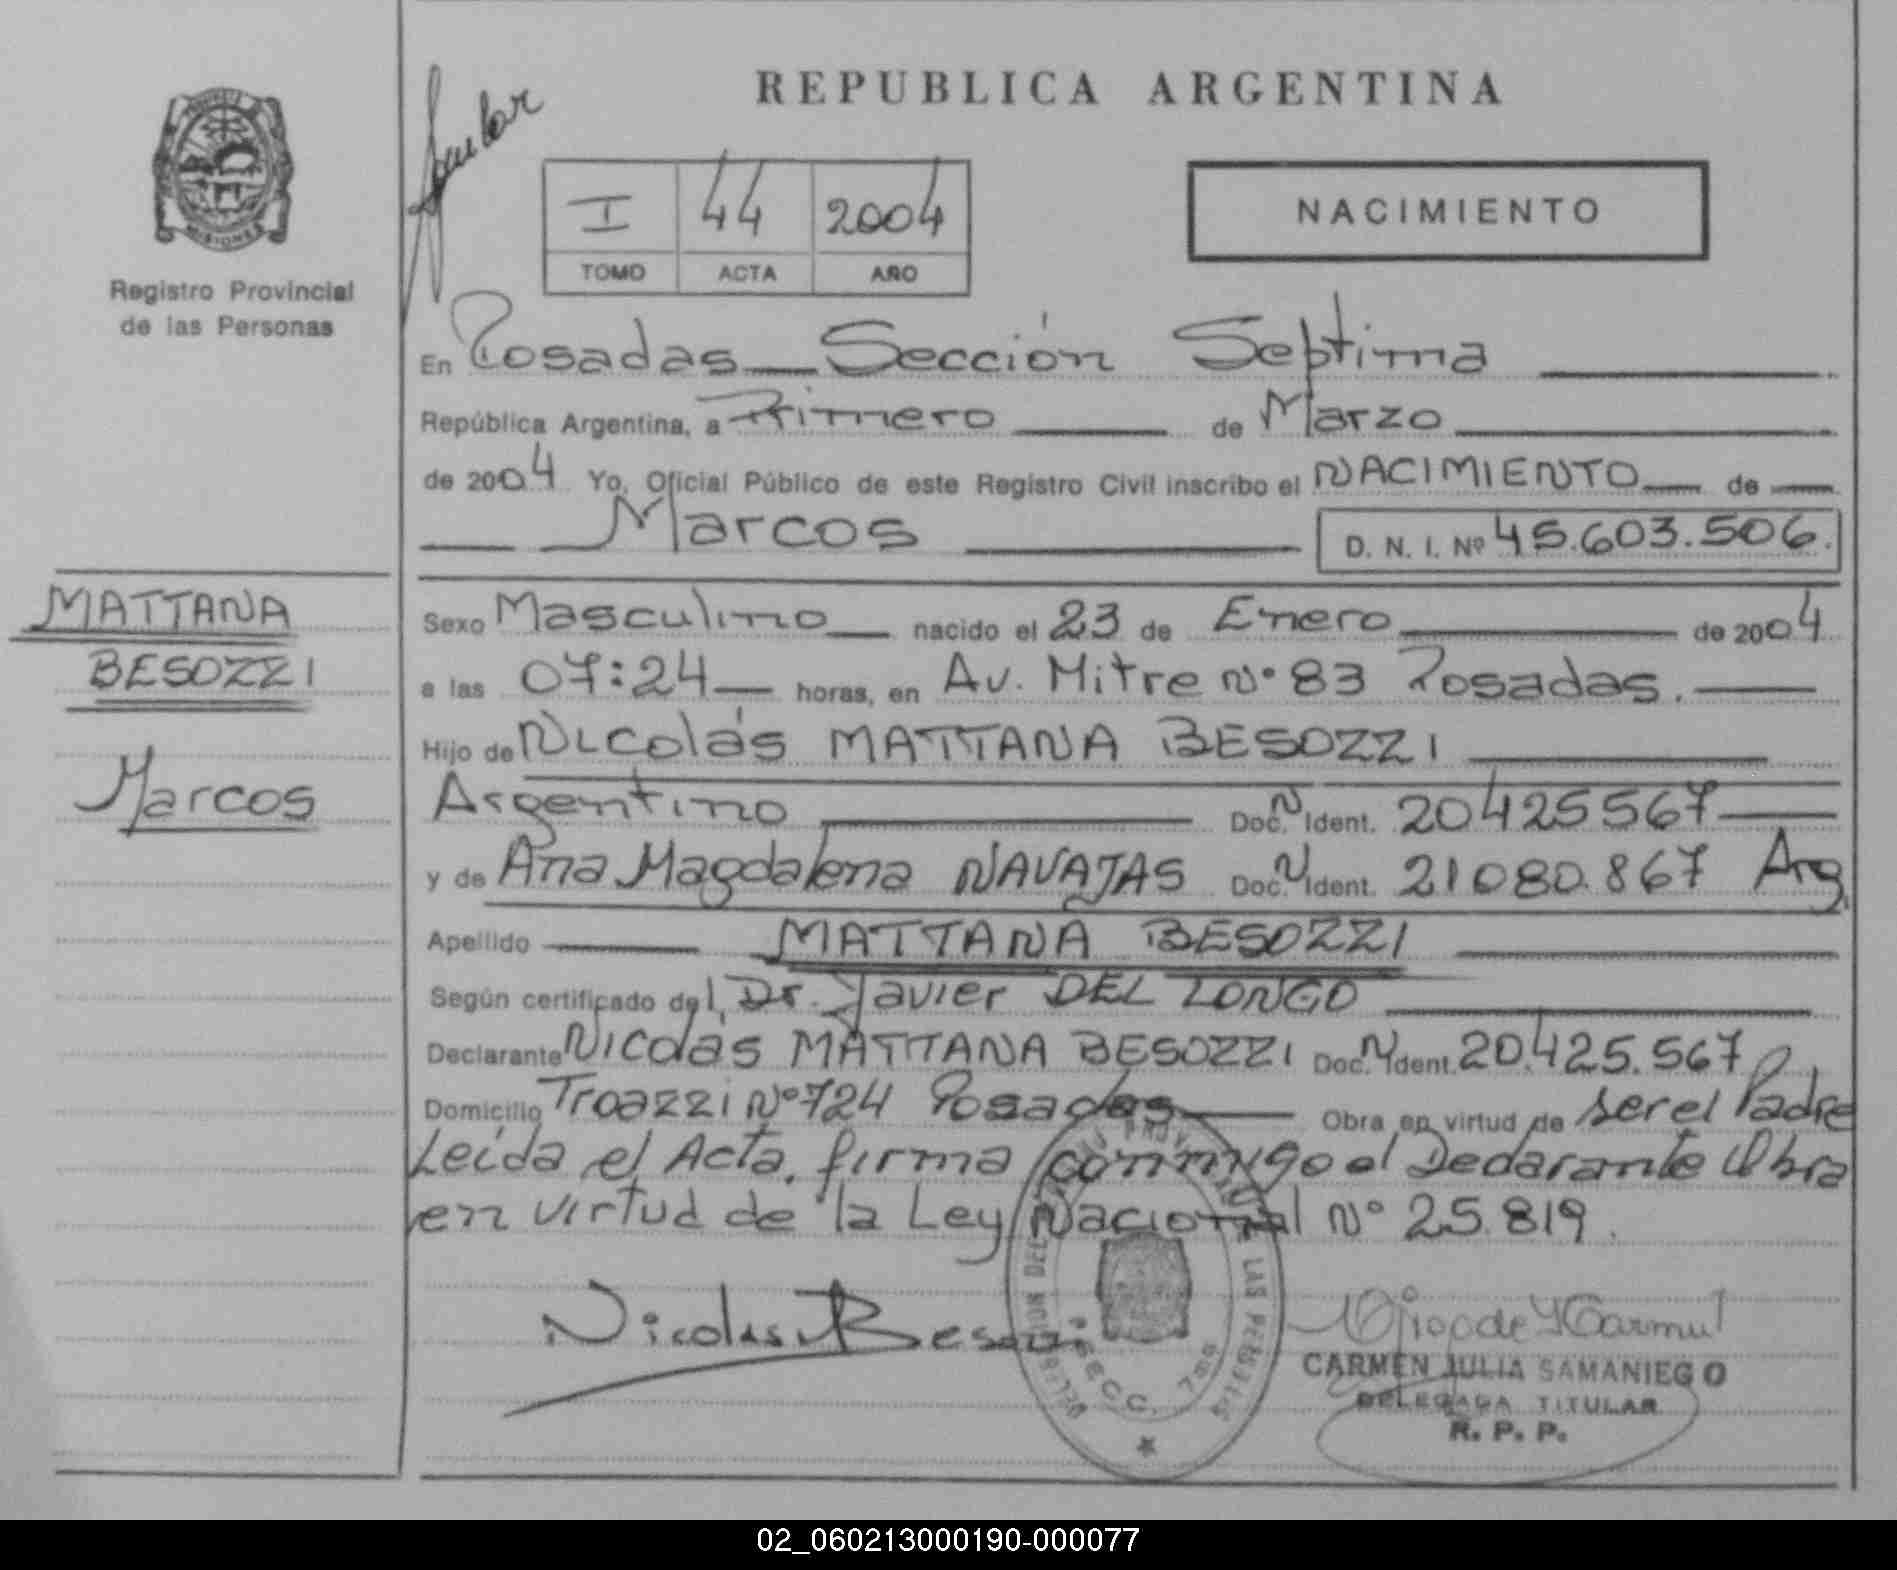 REPUBLICA ARGENTINA
MISIONES
Registro Provincial
de las Personas
I 44 2004
TOMO ACTA AÑO
NACIMIENTO
En Posadas Sección Septima
República Argentina, a Primero de Marzo
de 2004 Yo, Oficial Público de este Registro Civil inscribo el NACIMIENTO de
Marcos D. N. I. Nº 45.603.506.
MATTANA
BESOZZI
Marcos
Sexo Masculino nacido el 23 de Enero de 2004
a las 07:24 horas, en Av. Mitre Nº 83 Posadas.
Hijo de Nicolás MATTANA BESOZZI
Argentino Doc. N Ident. 20425567
y de Ana Magdalena NAVAJAS Doc. N Ident. 21080.867 Arg
Apellido MATTANA BESOZZI
Según certificado del Dr. Javier DEL LONGO
Declarante Nicolás MATTANA BESOZZI Doc. N Ident. 20.425.567
Domicilio Troazzi Nº 724 Posadas Obra en virtud de ser el Padre
Leida el Acta, firma conmigo el Declarante Obra
en virtud de la Ley Nacional Nº 25.819.
Nicolas Besozzi
SECC. 7ma
LAS PERSONAS
CARMEN JULIA SAMANIEGO
DELEGADA TITULAR
R. P. P.
02_060213000190-000077